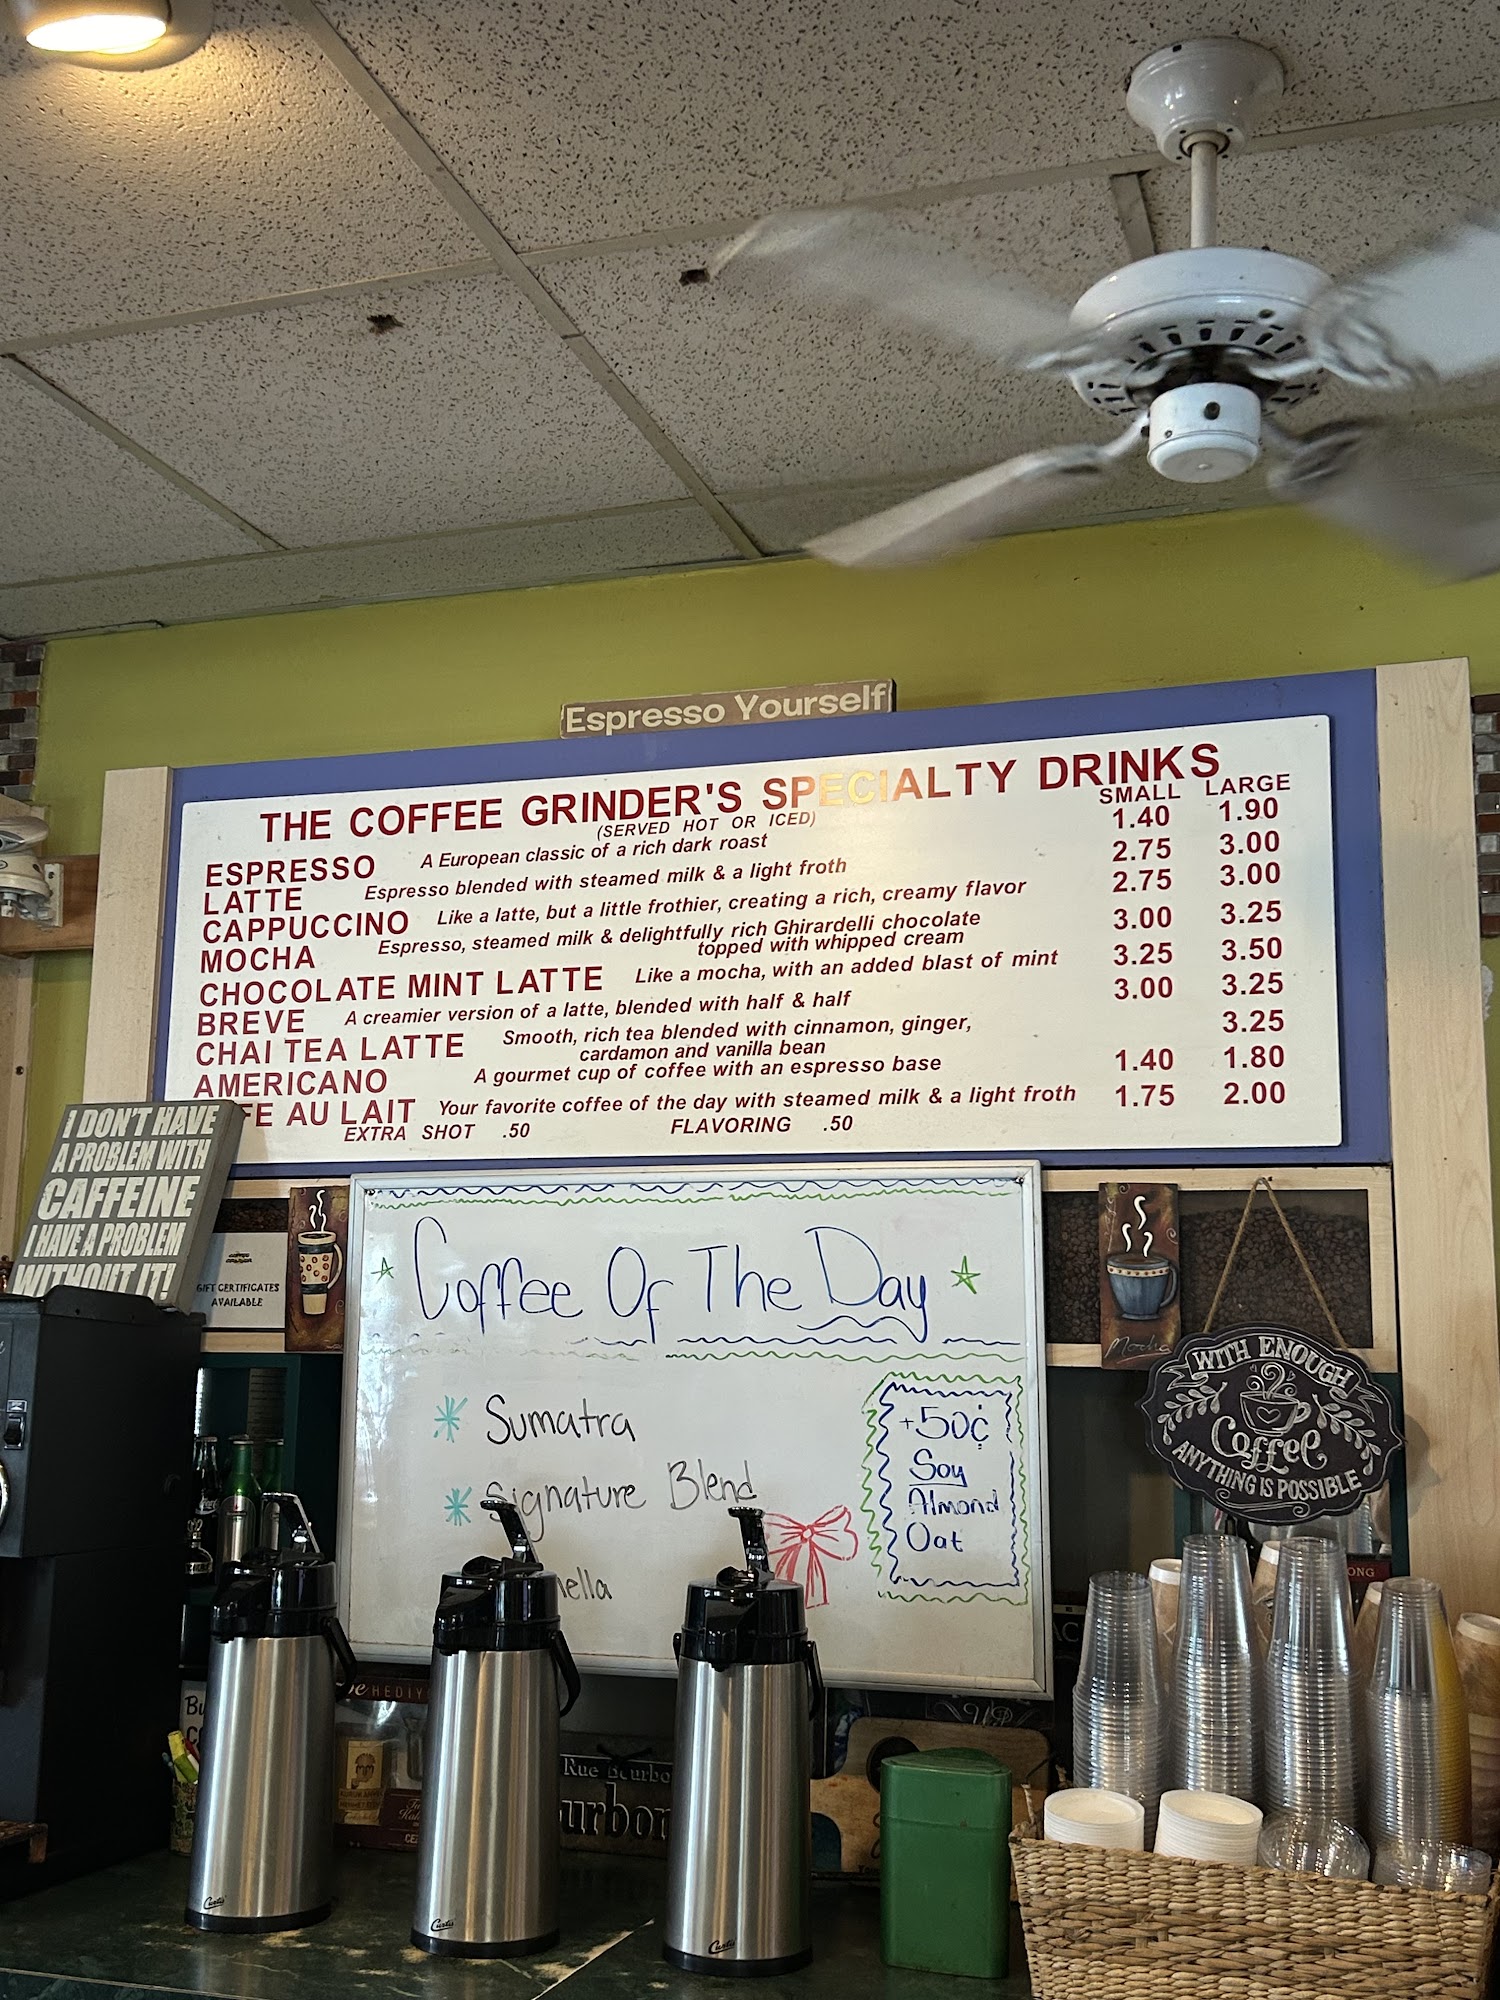 Espresso Yourself
THE COFFEE GRINDER'S SPECIALTY DRINKS
(SERVED HOT OR ICED)
SMALL LARGE
ESPRESSO A European classic of a rich dark roast 1.40 1.90
LATTE Espresso blended with steamed milk & a light froth 2.75 3.00
CAPPUCCINO Like a latte, but a little frothier, creating a rich, creamy flavor 2.75 3.00
MOCHA Espresso, steamed milk & delightfully rich Ghirardelli chocolate 3.00 3.25
topped with whipped cream
CHOCOLATE MINT LATTE Like a mocha, with an added blast of mint 3.25 3.50
BREVE A creamier version of a latte, blended with half & half 3.00 3.25
CHAI TEA LATTE Smooth, rich tea blended with cinnamon, ginger, 3.25
cardamon and vanilla bean
AMERICANO A gourmet cup of coffee with an espresso base 1.40 1.80
FE AU LAIT Your favorite coffee of the day with steamed milk & a light froth 1.75 2.00
EXTRA SHOT .50 FLAVORING .50
I DON'T HAVE
A PROBLEM WITH
CAFFEINE
I HAVE A PROBLEM
WITHOUT IT!
GIFT CERTIFICATES
AVAILABLE
Coffee Of The Day
Sumatra
Signature Blend
nella
+50¢
Soy
Almond
Oat
Mocha
WITH ENOUGH
Coffee
ANYTHING IS POSSIBLE
Rue Bourbo
urbon
Curtis
Curtis
Curtis